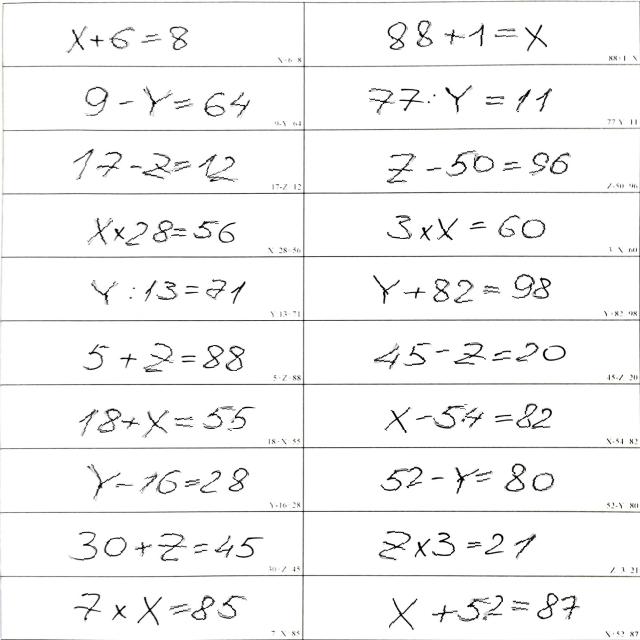 X+6=8
X+6=8
88+1=X
88+1=X
9-Y=64
9-Y=64
77:Y=11
77:Y=11
17-Z=12
17-Z=12
Z-50=96
Z-50=96
X×28=56
X×28=56
3×X=60
3×X=60
Y:13=71
Y:13=71
Y+82=98
Y+82=98
5+Z=88
5+Z=88
45-Z=20
45-Z=20
18+X=55
18+X=55
X-54=82
X-54=82
Y-16=28
Y-16=28
52-Y=80
52-Y=80
30+Z=45
30+Z=45
Z×3=21
Z×3=21
7×X=85
7×X=85
X+52=87
X+52=87